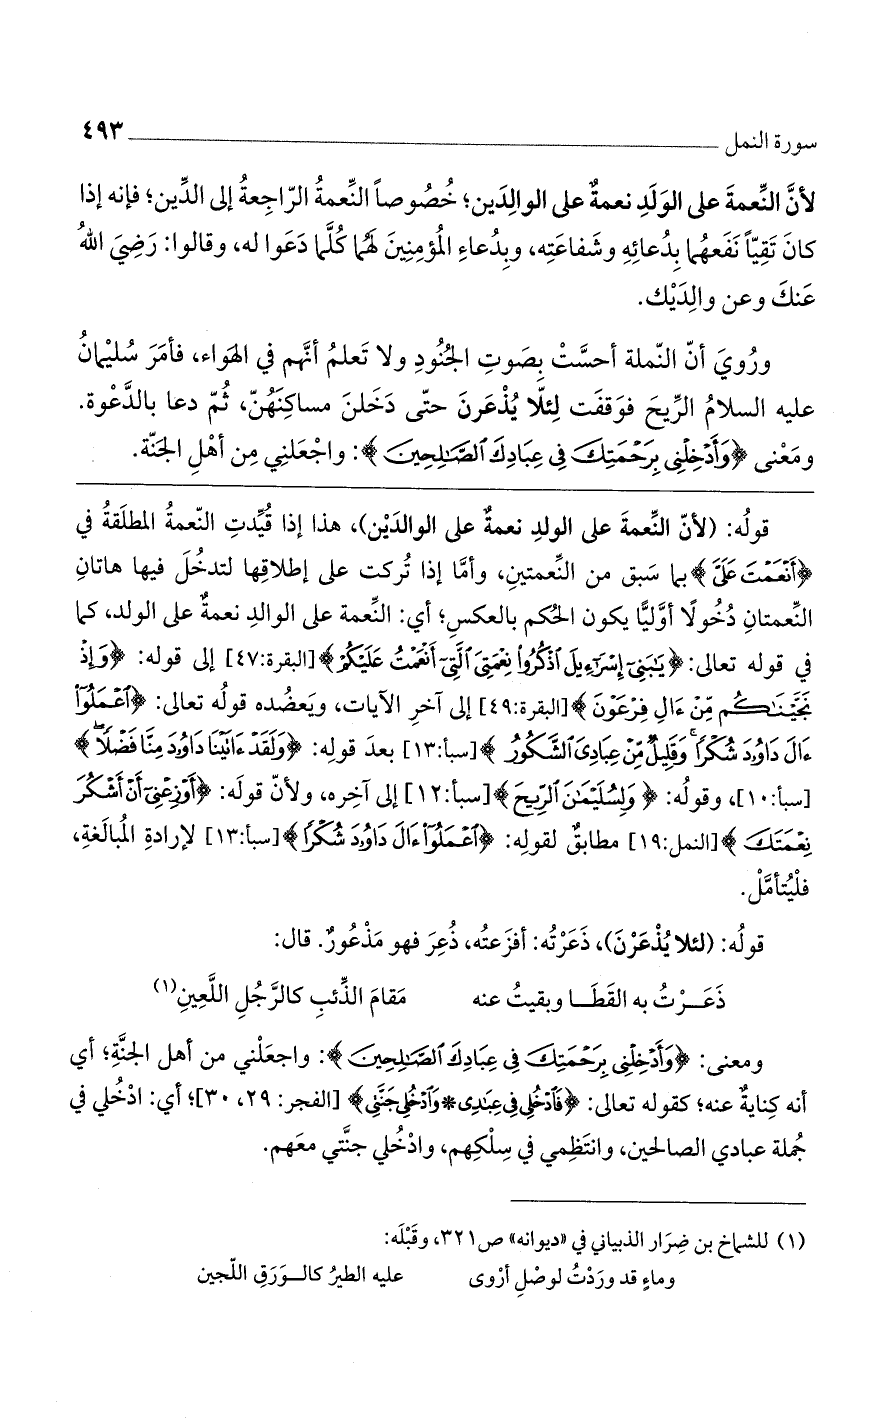 سورة النمل ٤٩٣
لأنَّ النِّعمةَ على الوَلَدِ نعمةٌ على الوالِدَينِ؛ خُصُوصاً النِّعمةُ الرّاجعةُ إلى الدِّين؛ فإنه إذا
كانَ تَقِيّاً نَفَعهُما بِدُعائِهِ وشَفاعَتِه، وبِدُعاءِ المُؤمِنِينَ لهُما كُلَّما دَعَوا له، وقالوا: رَضِيَ اللهُ
عَنكَ وعن والِدَيْك.
ورُوِيَ أنّ النّملة أحسَّتْ بِصَوتِ الجُنُودِ ولا تَعلمُ أنَّهم في الهَواء، فأمَرَ سُليْمانُ
عليه السلامُ الرِّيحَ فوَقفَت لِئلّا يُذْعَرنَ حتّى دَخَلنَ مساكِنَهُنّ، ثُمّ دعا بالدَّعْوة.
ومَعْنى ﴿وَأَدْخِلْنِى بِرَحْمَتِكَ فِى عِبَادِكَ ٱلصَّـٰلِحِينَ﴾: واجْعَلني مِن أهْلِ الجَنّة.
قولُه: (لأنّ النِّعمةَ على الولدِ نعمةٌ على الوالدَيْن)، هذا إذا قُيِّدتِ النّعمةُ المطلَقةُ في
﴿أَنْعَمْتَ عَلَىَّ﴾ بما سَبق من النِّعمتينِ، وأمَّا إذا تُركت على إطلاقِها لتدخُلَ فيها هاتانِ
النِّعمتانِ دُخولًا أوَّليًّا يكون الحُكم بالعكسِ؛ أي: النِّعمة على الوالدِ نعمةٌ على الولد، كما
في قوله تعالى: ﴿يَـٰبَنِىٓ إِسْرَٰٓءِيلَ ٱذْكُرُوا۟ نِعْمَتِىَ ٱلَّتِىٓ أَنْعَمْتُ عَلَيْكُمْ﴾ [البقرة:٤٧] إلى قوله: ﴿وَإِذْ
نَجَّيْنَـٰكُم مِّنْ ءَالِ فِرْعَوْنَ﴾ [البقرة:٤٩] إلى آخرِ الآيات، ويَعضُده قولُه تعالى: ﴿ٱعْمَلُوٓا۟
ءَالَ دَاوُۥدَ شُكْرًا ۚ وَقَلِيلٌ مِّنْ عِبَادِىَ ٱلشَّكُورُ﴾ [سبأ:١٣] بعدَ قولِه: ﴿وَلَقَدْ ءَاتَيْنَا دَاوُۥدَ مِنَّا فَضْلًا ۖ﴾
[سبأ:١٠]، وقولُه: ﴿وَلِسُلَيْمَـٰنَ ٱلرِّيحَ﴾ [سبأ:١٢] إلى آخِره، ولأنّ قولَه: ﴿أَوْزِعْنِىٓ أَنْ أَشْكُرَ
نِعْمَتَكَ﴾ [النمل:١٩] مطابقٌ لقولِه: ﴿ٱعْمَلُوٓا۟ ءَالَ دَاوُۥدَ شُكْرًا﴾ [سبأ:١٣] لإرادةِ المُبالَغة،
فلْيُتأمَّلْ.
قولُه: (لئلا يُذْعَرْنَ)، ذَعَرْتُه: أفزَعتُه، ذُعِرَ فهو مَذْعُورٌ. قال:
ذَعَـرْتُ به القَطَـا وبقيتُ عنه مَقامَ الذِّئبِ كالرَّجُلِ اللَّعينِ(١)
ومعنى: ﴿وَأَدْخِلْنِى بِرَحْمَتِكَ فِى عِبَادِكَ ٱلصَّـٰلِحِينَ﴾: واجعَلْني من أهل الجنَّةِ؛ أي
أنه كِنايةٌ عنه؛ كقوله تعالى: ﴿فَٱدْخُلِى فِى عِبَـٰدِى * وَٱدْخُلِى جَنَّتِى﴾ [الفجر: ٢٩، ٣٠]؛ أي: ادْخُلي في
جُملة عبادي الصالحين، وانتَظِمي في سِلْكِهم، وادْخُلي جنَّتي معَهم.
(١) للشماخ بن ضِرَار الذبياني في «ديوانه» ص٣٢١، وقَبْلَه:
وماءٍ قد ورَدْتُ لوصْلِ أرْوى عليه الطيرُ كالـورَقِ اللّجين